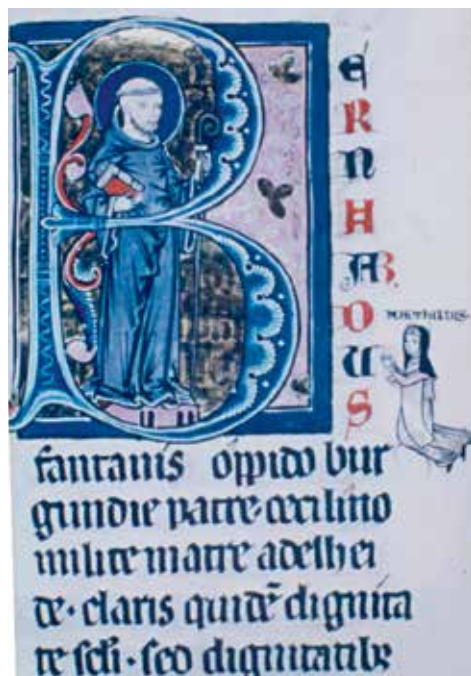 BERNHARDUS
fantanis oppido bur
gundie patre·cecilino
milite matre adelhei
de·claris quidē dignita
te scli·sed dignitatibꝫ